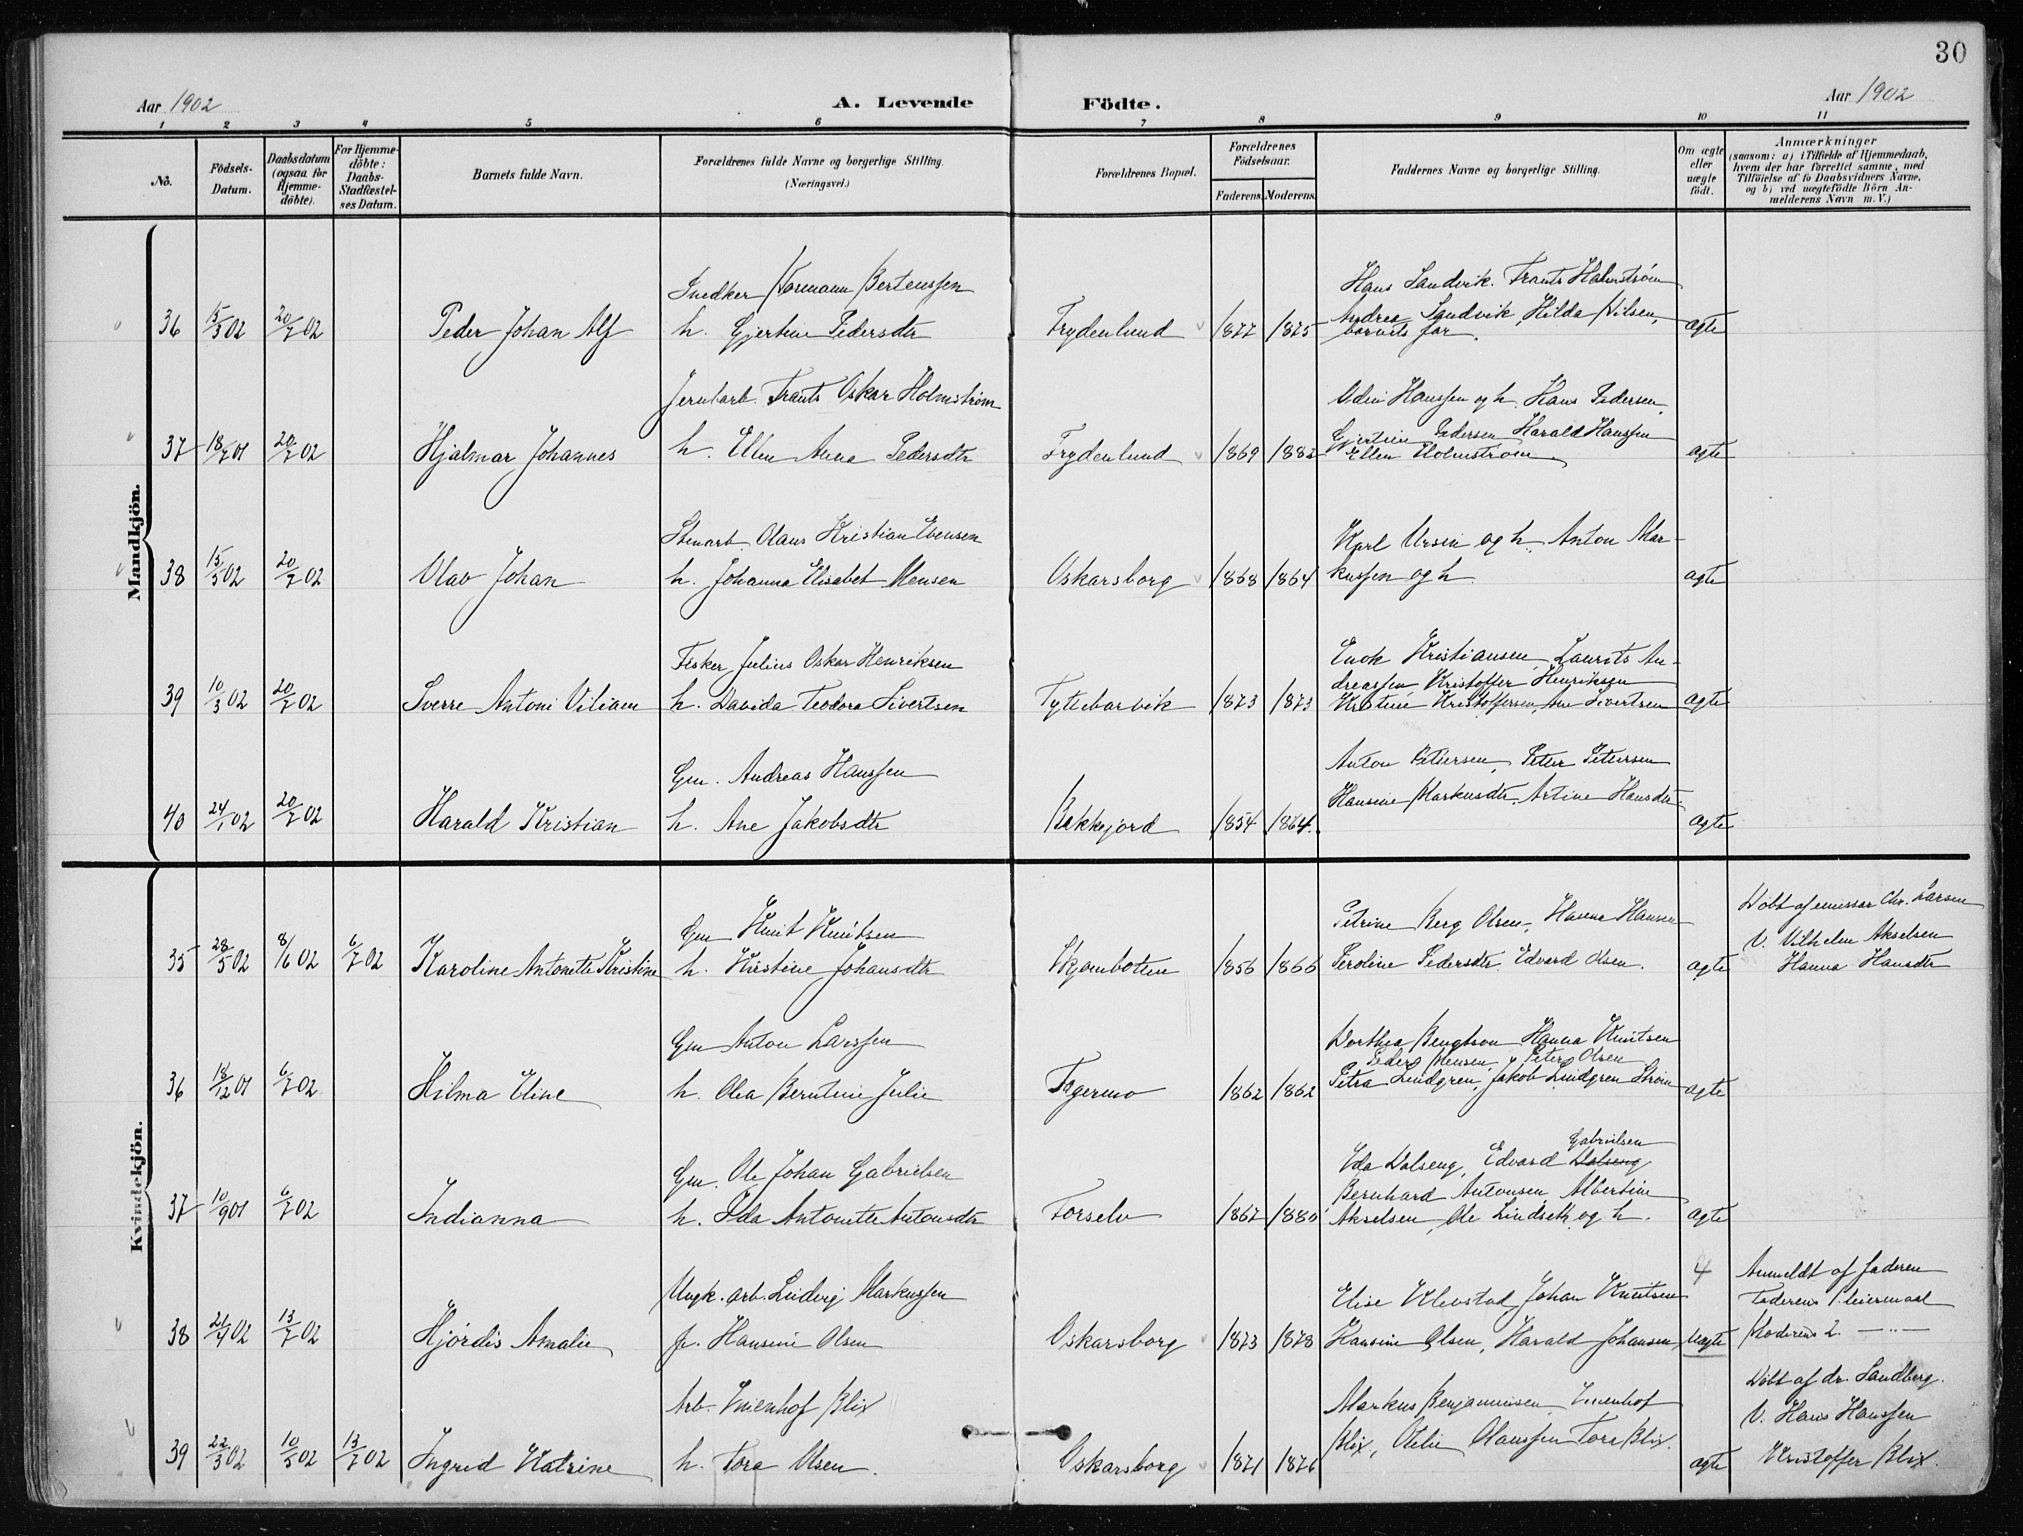 30
Aar 1902
A. Levende Födte.
Aar 1902
1 2 3 4 5 6 7 8 9 10 11
No.
Födsels-Datum.
Daabsdatum (ogsaa for Hjemme-döbte).
For Hjemme-döbte: Daabs-Stadfæstel-ses Datum.
Barnets fulde Navn.
Forældrenes fulde Navne og borgerlige Stilling.
(Næringsvei.)
Forældrenes Bopæl.
Forældrenes Födselsaar.
Faderens. Moderens.
Faddernes Navne og borgerlige Stilling.
Om ægte eller uægte födt.
Anmærkninger
(saasom: a) i Tilfælde af Hjemmedaab,
hvem der har forrettet samme, med
Tilföielse af to Daabsvidners Navne,
og b) ved uægtefödte Börn An-
melderens Navn m. V.)
Mandkjön.
Snedker Normann Bertenssen
Hans Sandvik. Frants Holmstrøm
36 15/3 02 20/7 02 Peder Johan Alf h. Gjertine Pedersdtr Frydenlund 1877 1875 Andrea Sandvik, Hilda Nilsen, ægte
barnets far.
Jernbarb. Frants Oskar Holmstrøm
Odin Hanssen og h. Hans Pedersen,
37 18/7 01 20/7 02 Hjalmar Johannes h. Ellen Anna Pedersdtr Frydenlund 1869 1882 Gjertine Pedersen Harald Hanssen ægte
Ellen Holmstrøm
Stenarb. Olaus Kristian Evensen
Karl Ursin og h. Anton Mar-
38 15/5 02 20/7 02 Olav Johan h. Johanna Elisabet Monsen Oskarsborg 1868 1864 kussen og h. ægte
Fisker Julius Oskar Henriksen
Enok Kristiansen, Laurits An-
dreassen Kristoffer Henriksen
39 10/3 02 20/7 02 Sverre Antoni Viliam h. Davida Teodora Sivertsen Tyttebærvik 1873 1873 Kristine Kristoffersen, Ane Sivertsen ægte
Gm. Andreas Hanssen
Anton Petersen, Peter Petersen
Hansine Markusdtr. Artine Hansdtr.
40 24/1 02 20/7 02 Harald Kristian h. Ane Jakobsdtr Bakkejord 1854 1864. ægte
Kvindekjön.
Gm Knut Knutsen
Petrine Berg Olsen, Hanna Hansen
Døbt af emissær Chr. Larsen
V. Vilhelm Akselsen
35 28/5 02 8/6 02 6/7 02 Karoline Antonette Kristine h. Kristine Johansdtr Skjombotten 1856 1866 Peroline Pedersdtr. Edvard Olsen. ægte Hanna Hansdtr
Gm Anton Larssen
Dorthea Bengtson Hanna Knutsen
Peder Monsen, Peter Olsen
36 18/12 01 6/7 02 Hilma Eline h. Olea Berntine Julie Fagermo 1862 1862 Petra Lindgren, Jakob Lindgren Strøm ægte
Gm. Ole Johan Gabrielsen
Gabrielsen
Eda Dalseng, Edvard Dalseng
Bernhard Antonsen, Albertine
37 10/9 01 6/7 02 Indianna h. Ida Antonette Antonsdtr Forselv 1867 1880 Akselsen, Ole Lindseth og h. ægte
4
Ungk. arb. Ludvig Markussen
Elise Klevstad, Johan Knutsen
Anmeldt af faderen
Faderens 1. leiermaal
38 21/4 02 13/7 02 Hjørdis Amalie p. Hansine Olsen Oskarsborg 1873 1878 Hansine Olsen, Harald Johansen, uægte Moderens 2. — " —
Arb. Blix
Markus Benjaminsen,
Døbt af dr. Sandberg.
V. Hans Hanssen
Blix, Otelie Hanssen Tora Blix.
39 22/3 02 10/5 02 13/7 02 Ingrid Katrine h. Tora Olsen. Oskarsborg 1871 1876 ægte Kristoffer Blix.